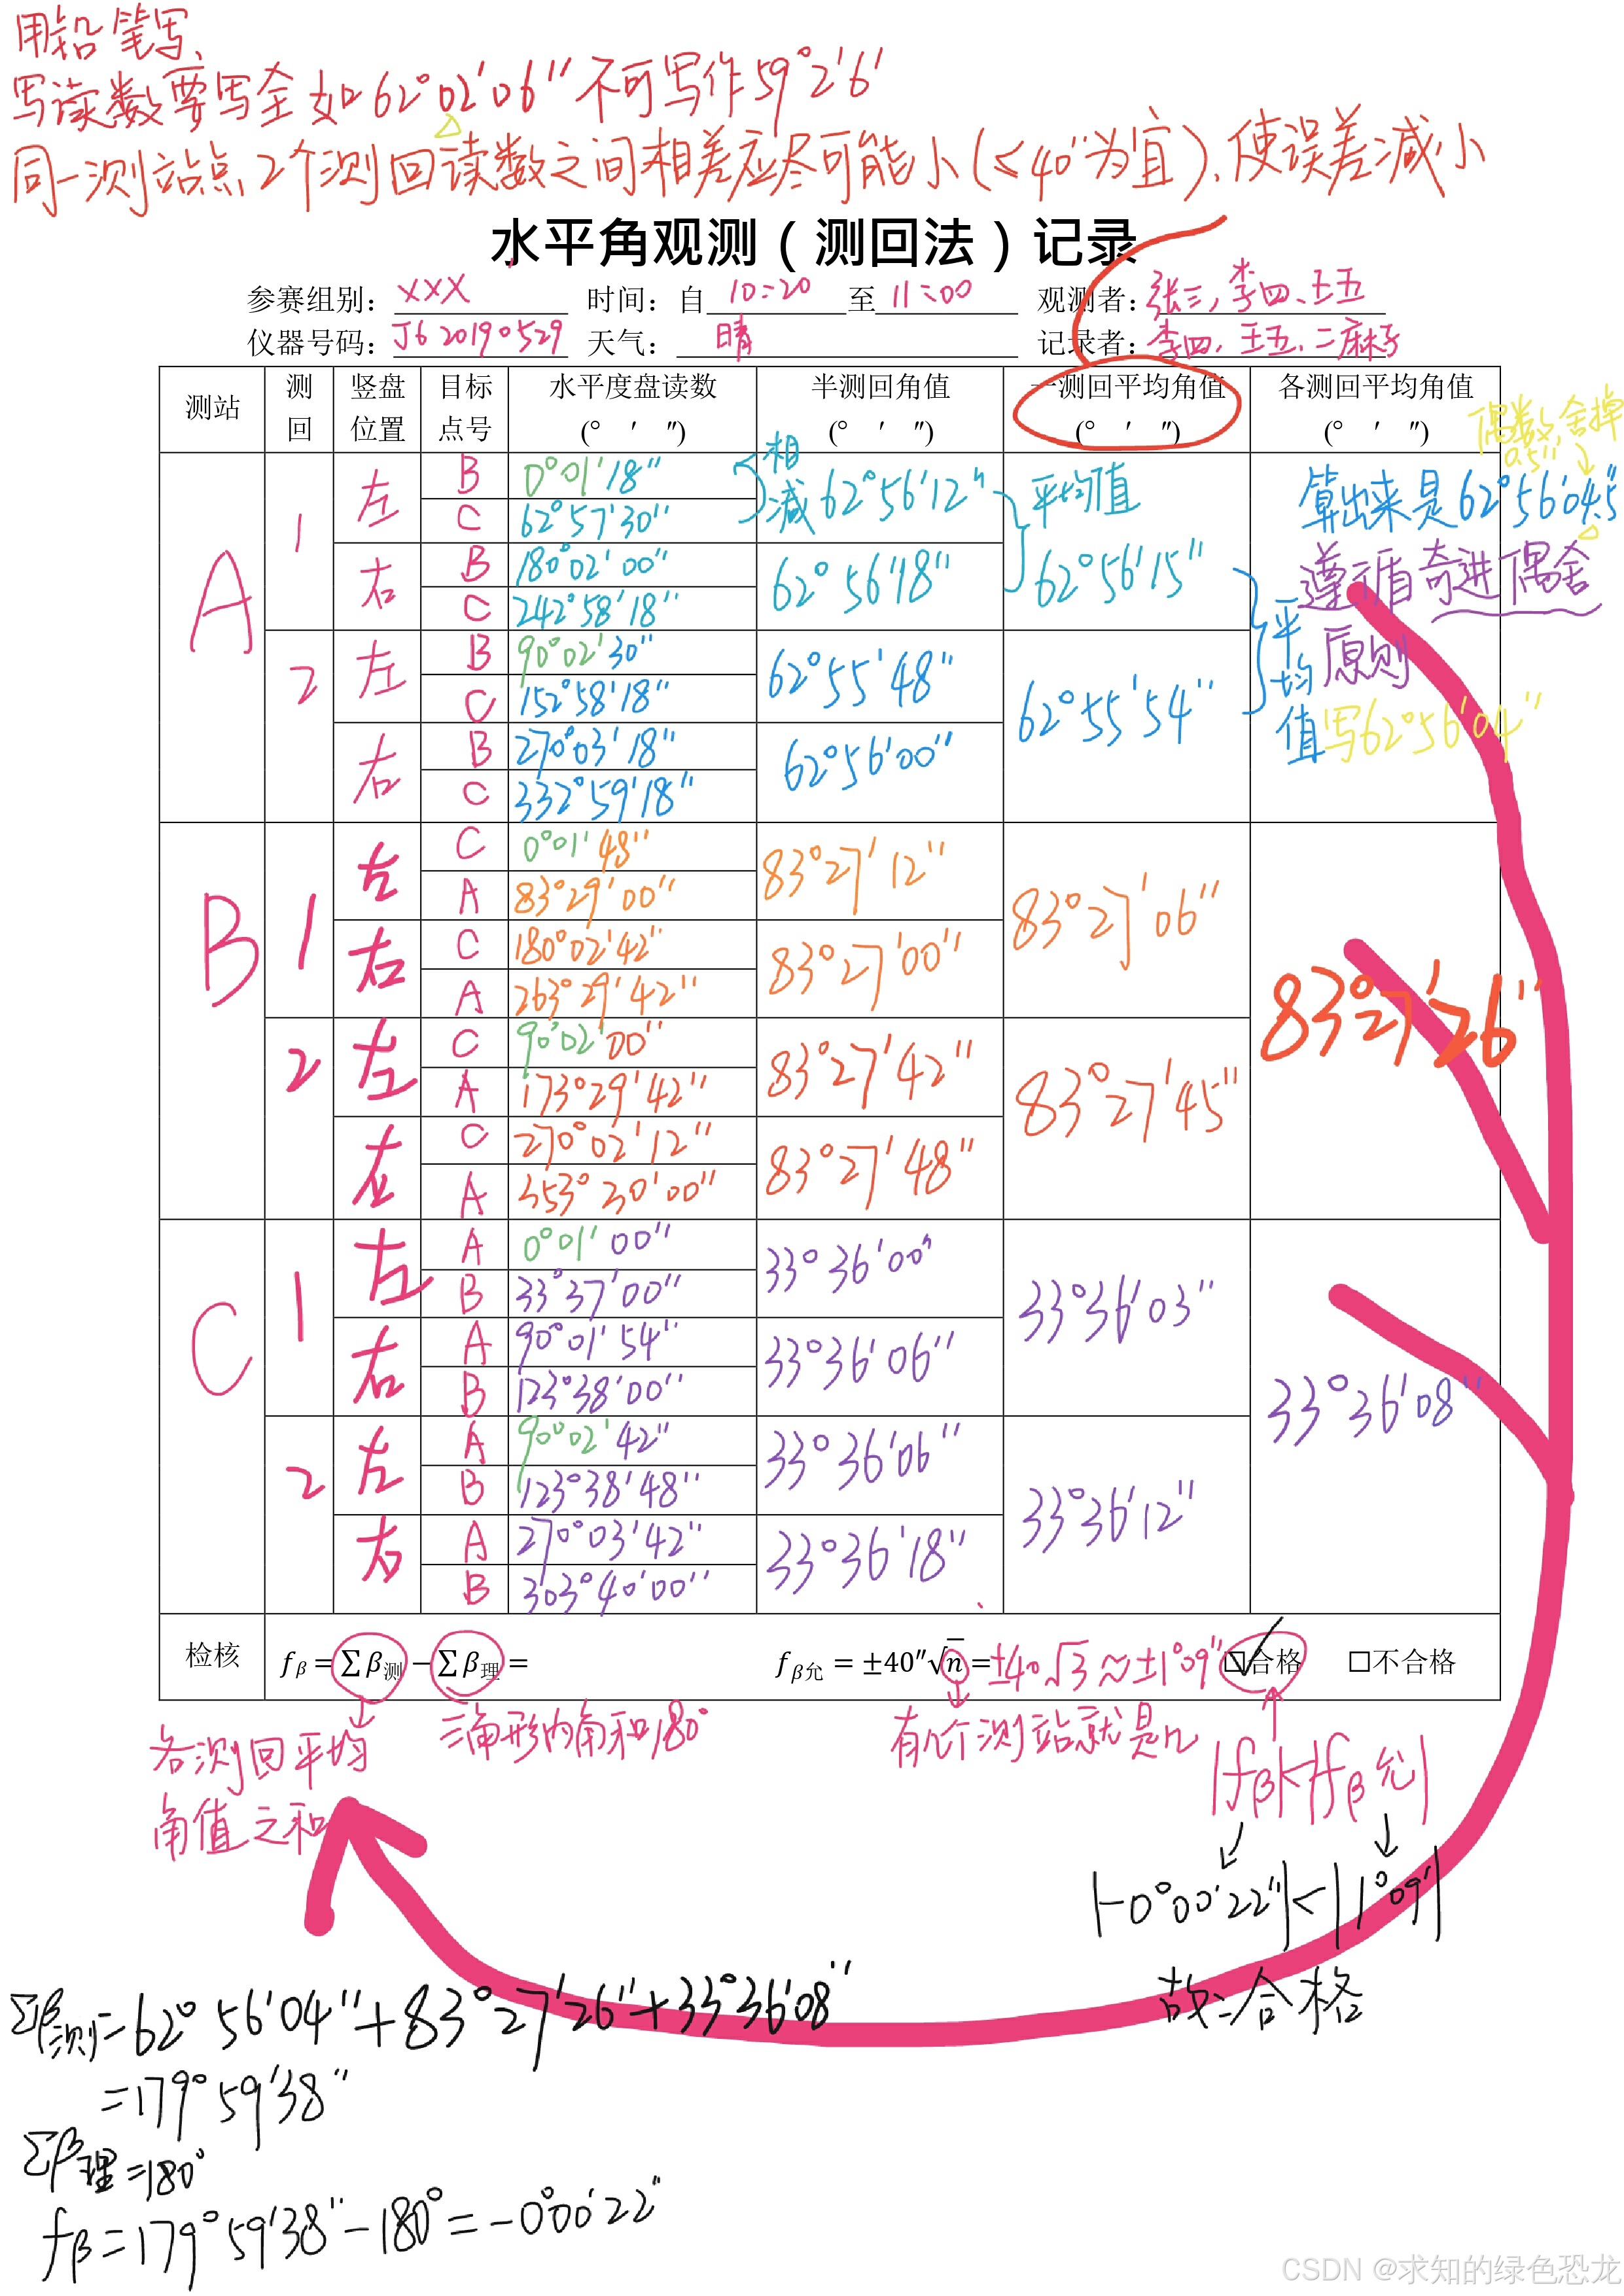 用铅笔写、
写读数要写全 如62°02′06″不可写作59°2′6′
同一测站点,2个测回读数之间相差应尽可能小(≤40″为宜)、使误差减小
水平角观测（测回法）记录
参赛组别： XXX 时间：自 10:20 至 11:00 观测者： 张三,李四、王五
仪器号码： J6 20190529 天气： 晴 记录者： 李四、王五、二麻子
测站 测回 竖盘位置 目标点号 水平度盘读数 (° ′ ″) 半测回角值 (° ′ ″) 一测回平均角值 (° ′ ″) 各测回平均角值 (° ′ ″)
偶数,舍掉0.5″
A 1 左 B 0°01′18″ 相减 62°56′12″ 平均值 算出来是62°56′04.5
C 62°57′30″
右 B 180°02′00″ 62°56′18″ 62°56′15″ 遵循奇进偶舍
C 242°58′18″
2 左 B 90°02′30″ 62°55′48″ 平均值 原则
C 152°58′18″ 62°55′54″
右 B 270°03′18″ 62°56′00″ 写62°56′04″
C 332°59′18″
B 1 左 C 0°01′48″ 83°27′12″
A 83°29′00″ 83°27′06″
右 C 180°02′42″ 83°27′00″
A 263°29′42″ 83°27′26″
2 左 C 90°02′00″ 83°27′42″
A 173°29′42″ 83°27′45″
左 C 270°02′12″ 83°27′48″
A 353°30′00″
C 1 左 A 0°01′00″ 33°36′00″
B 33°37′00″ 33°36′03″
右 A 90°01′54″ 33°36′06″
B 123°38′00″ 33°36′08″
2 左 A 90°02′42″ 33°36′06″
B 123°38′48″ 33°36′12″
右 A 270°03′42″ 33°36′18″
B 303°40′00″
检核 fβ = ∑β测 − ∑β理 = fβ允 = ±40″√n = ±40√3≈±1°09″ ☑合格 □不合格
各测回平均
角值之和
三角形内角和180°
有几个测站就是n
|fβ|<|fβ允|
|-0°00′22″|<|1°09′|
故:合格
Σβ测=62°56′04″+83°27′26″+33°36′08″
=179°59′38″
Σβ理=180°
fβ=179°59′38″-180°=-0°00′22″
CSDN @求知的绿色恐龙